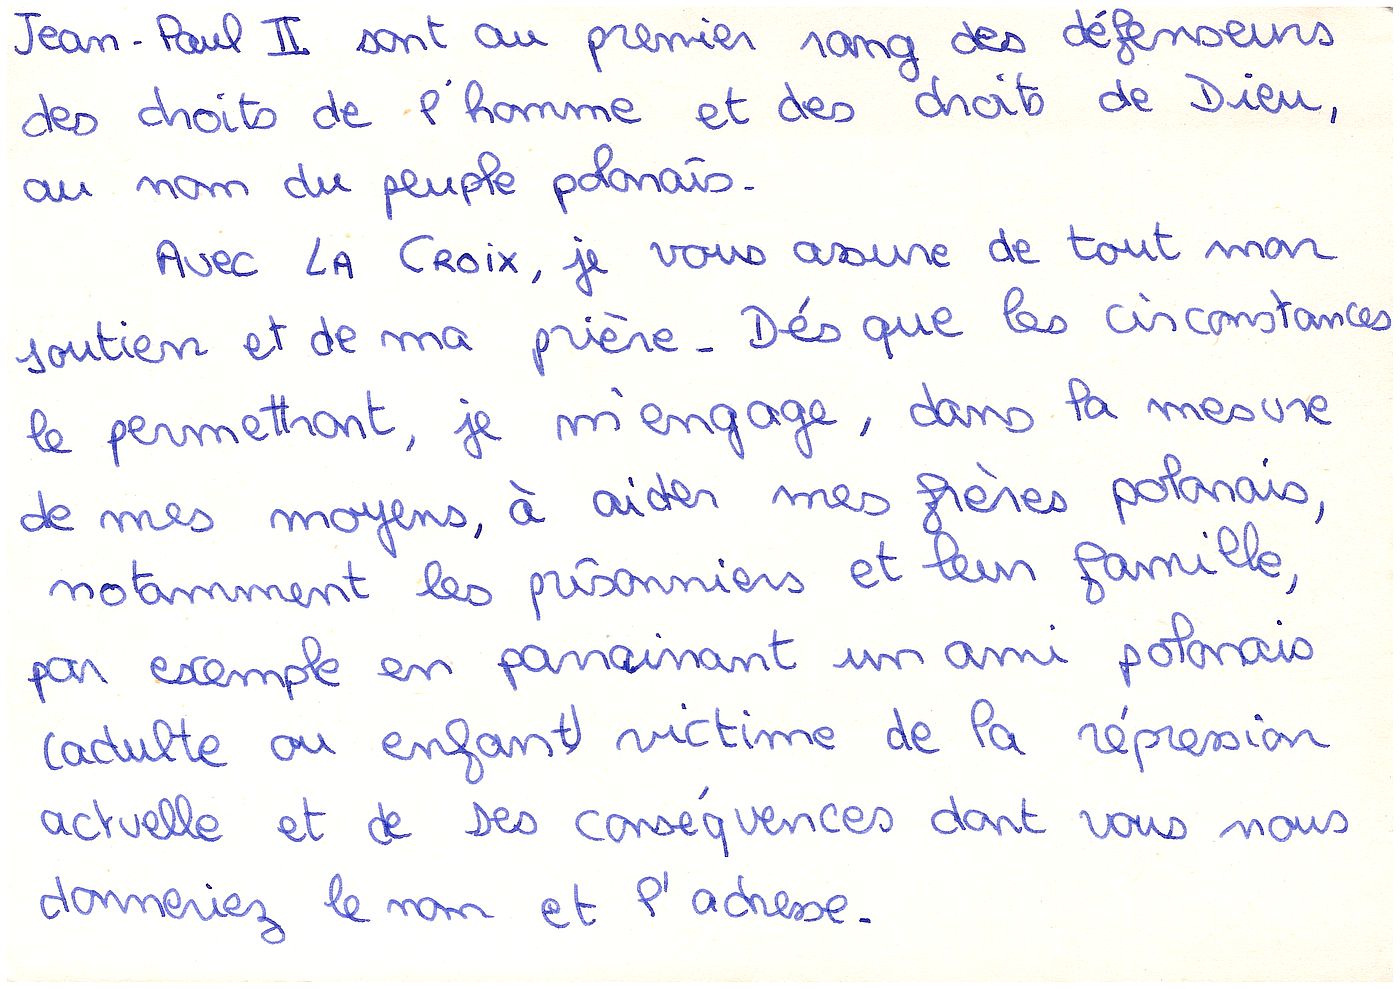 Jean-Paul II sont au premier rang des défenseurs
des droits de l'homme et des droits de Dieu,
au nom du peuple polonais.
Avec LA CROIX, je vous assure de tout mon
soutien et de ma prière. Dés que les circonstances
le permettront, je m'engage, dans la mesure
de mes moyens, à aider mes frères polonais,
notamment les prisonniers et leur famille,
par exemple en parrainant un ami polonais
(adulte ou enfant) victime de la répression
actuelle et de ses conséquences dont vous nous
donneriez le nom et l'adresse.